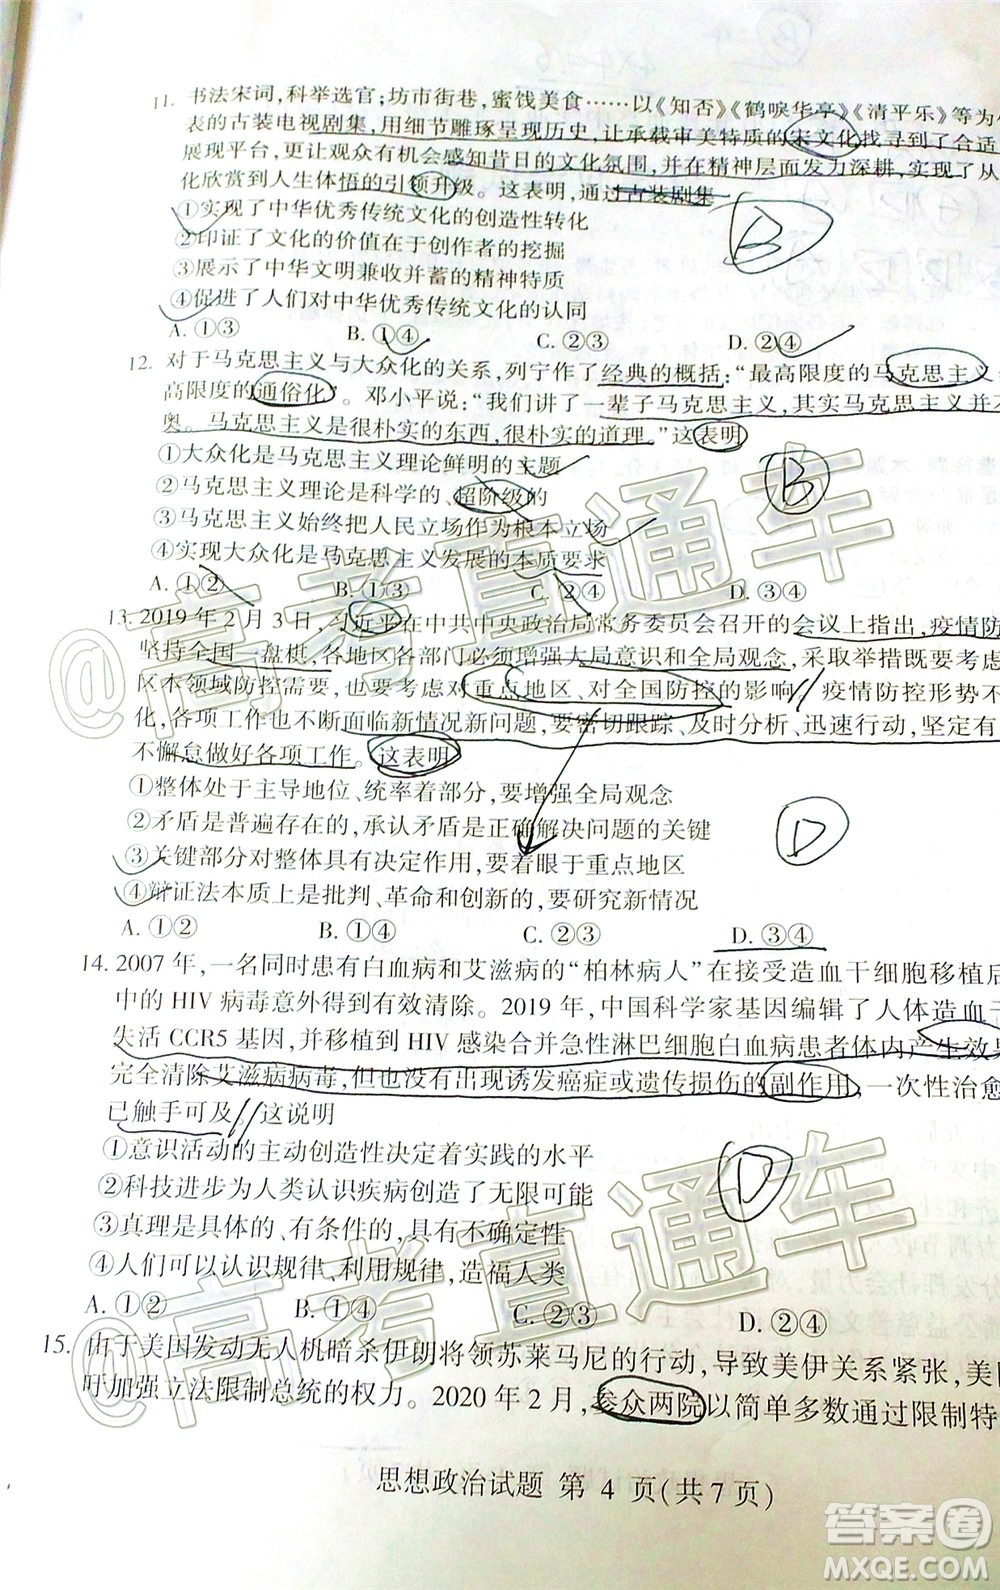 11. 书法宋词,科举选官;坊市街巷,蜜饯美食……以《知否》《鹤唳华亭》《清平乐》等为
表的古装电视剧集,用细节雕琢呈现历史,让承载审美特质的宋文化找寻到了合适
展现平台,更让观众有机会感知昔日的文化氛围,并在精神层面发力深耕,实现了从
化欣赏到人生体悟的引领升级。这表明,通过古装剧集
①实现了中华优秀传统文化的创造性转化
②印证了文化的价值在于创作者的挖掘
③展示了中华文明兼收并蓄的精神特质
④促进了人们对中华优秀传统文化的认同
A. ①③ B. ①④ C. ②③ D. ②④
B
12. 对于马克思主义与大众化的关系,列宁作了经典的概括:“最高限度的马克思主义
高限度的通俗化”。邓小平说:“我们讲了一辈子马克思主义,其实马克思主义并不
奥。马克思主义是很朴实的东西,很朴实的道理。”这表明
①大众化是马克思主义理论鲜明的主题
②马克思主义理论是科学的、超阶级的
③马克思主义始终把人民立场作为根本立场
④实现大众化是马克思主义发展的本质要求
A. ①② B. ①③ C. ②④ D. ③④
B
13. 2019 年 2 月 3 日,习近平在中共中央政治局常务委员会召开的会议上指出,疫情防
坚持全国一盘棋,各地区各部门必须增强大局意识和全局观念,要
区本领域防控需要,也要考虑对重点地区、对全国防控的影响。疫情防控形势不
化,各项工作也不断面临新情况新问题,要密切跟踪、及时分析、迅速行动,坚定有
不懈怠做好各项工作。这表明
①整体处于主导地位、统率着部分,要增强全局观念
②矛盾是普遍存在的,承认矛盾是正确解决问题的关键
③关键部分对整体具有决定作用,要着眼于重点地区
④辩证法本质上是批判、革命和创新的,要研究新情况
A. ①② B. ①④ C. ②③ D. ③④
D
14. 2007 年,一名同时患有白血病和艾滋病的“柏林病人”在接受造血干细胞移植后
中的 HIV 病毒意外得到有效清除。2019 年,中国科学家基因编辑了人体造血干
失活 CCR5 基因,并移植到 HIV 感染合并急性淋巴细胞白血病患者体内产生效果
完全清除艾滋病病毒,但也没有出现诱发癌症或遗传损伤的副作用,一次性治愈
已触手可及。这说明
①意识活动的主动创造性决定着实践的水平
②科技进步为人类认识疾病创造了无限可能
③真理是具体的、有条件的,具有不确定性
④人们可以认识规律、利用规律,造福人类
A. ①② B. ①④ C. ②③ D. ②④
D
15. 由于美国发动无人机暗杀伊朗将领苏莱马尼的行动,导致美伊关系紧张,美
吁加强立法限制总统的权力。2020 年 2 月,参众两院以简单多数通过限制特
思想政治试题 第 4 页(共 7 页)
@高考直通车
@高考直通车
答案圈
MXQE.COM